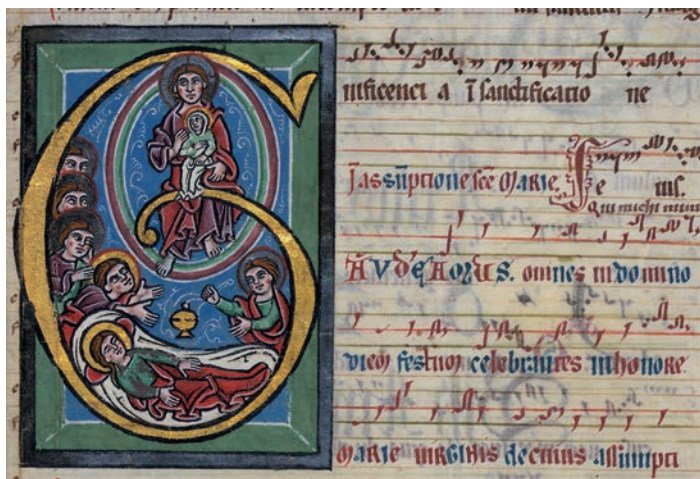 nificenci a ī sanctificatio ne
In assūptione scē Marie.
Qui michi
GAVDEAMUS. omnes in domino
diem festum celebrantes in honore
Marie virginis de cuius assumpti